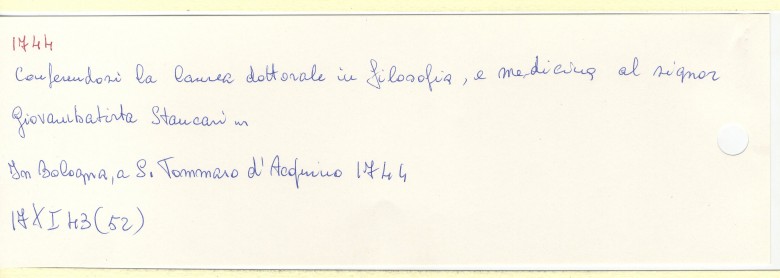 1744
Conferendosi la laurea dottorale in filosofia, e medicina al signor
Giovambatista Stancari in
In Bologna, a S. Tommaso d'Acquino 1744
17 X I 43 (52)